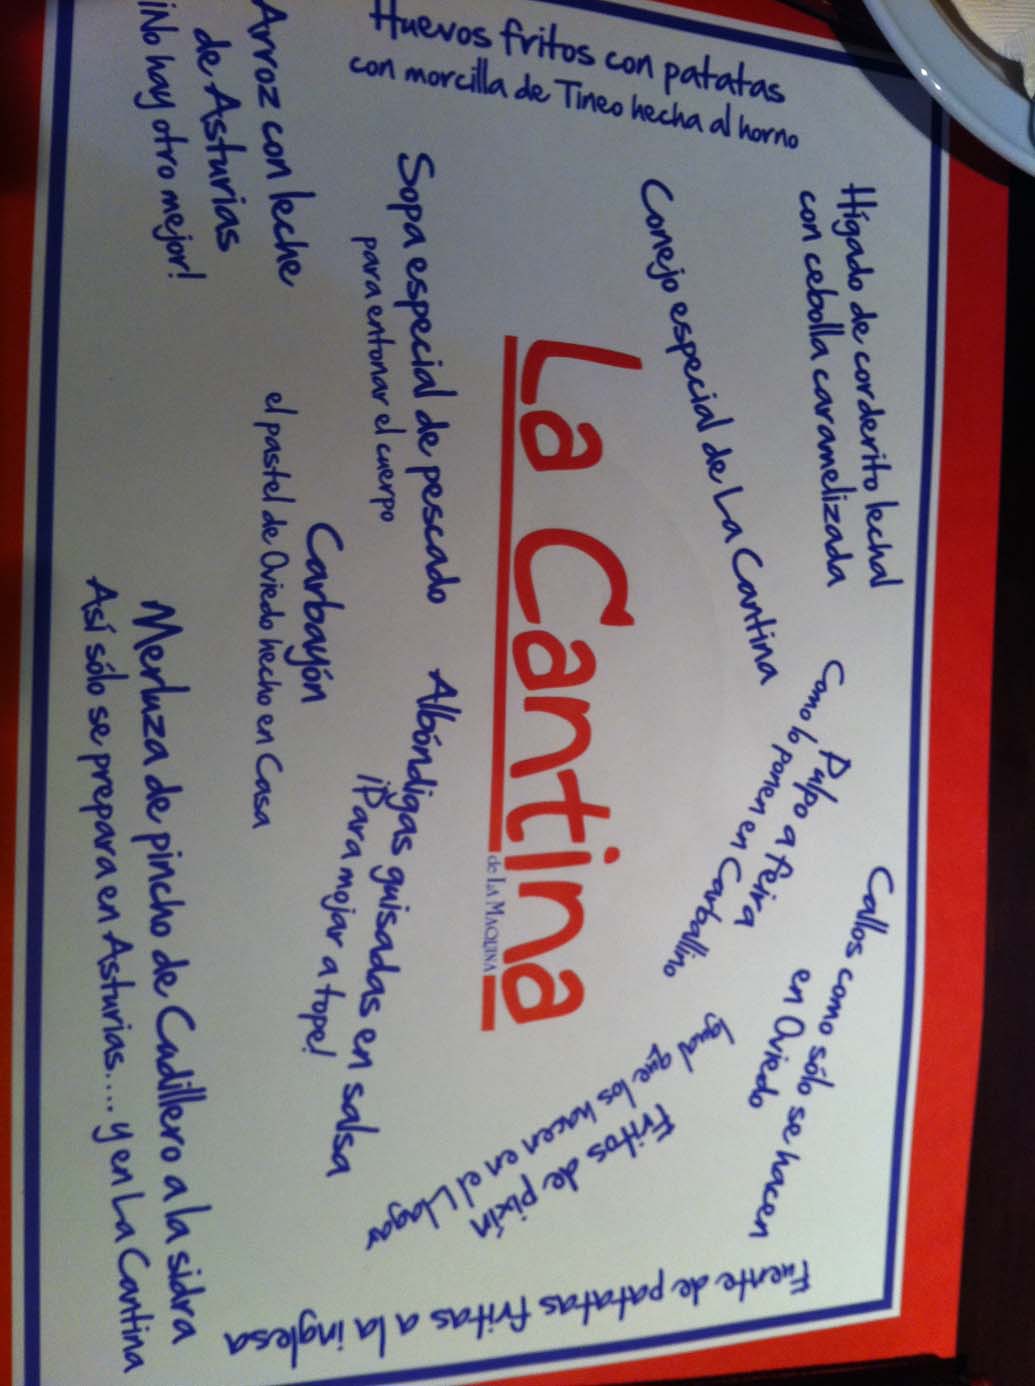 Huevos fritos con patatas
con morcilla de Tineo hecha al horno
Hígado de corderito lechal
con cebolla caramelizada
Conejo especial de La Cantina
Pulpo a feira
Como lo ponen en Carballino
Callos como sólo se hacen
en Oviedo
Sopa especial de pescado
para entonar el cuerpo
La Cantina
de LA MAQUINA
Arroz con leche
de Asturias
¡No hay otro mejor!
Albóndigas guisadas en salsa
¡Para mojar a tope!
Fritos de pixín
Igual que los hacen en el Llagar
Carbayón
el pastel de Oviedo hecho en Casa
Merluza de pincho de Cudillero a la sidra
Así sólo se prepara en Asturias.... y en La Cantina
Fuente de patatas fritas a la inglesa